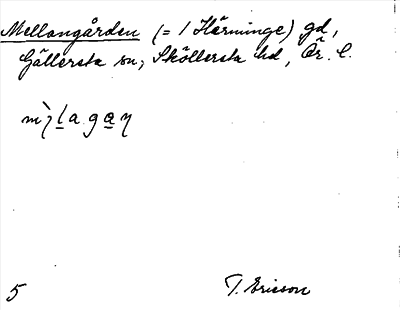 Mellangården (= 1 Härminge) gd,
Gällersta sn, Sköllersta hd, Ör. l.
5
T. Ericson